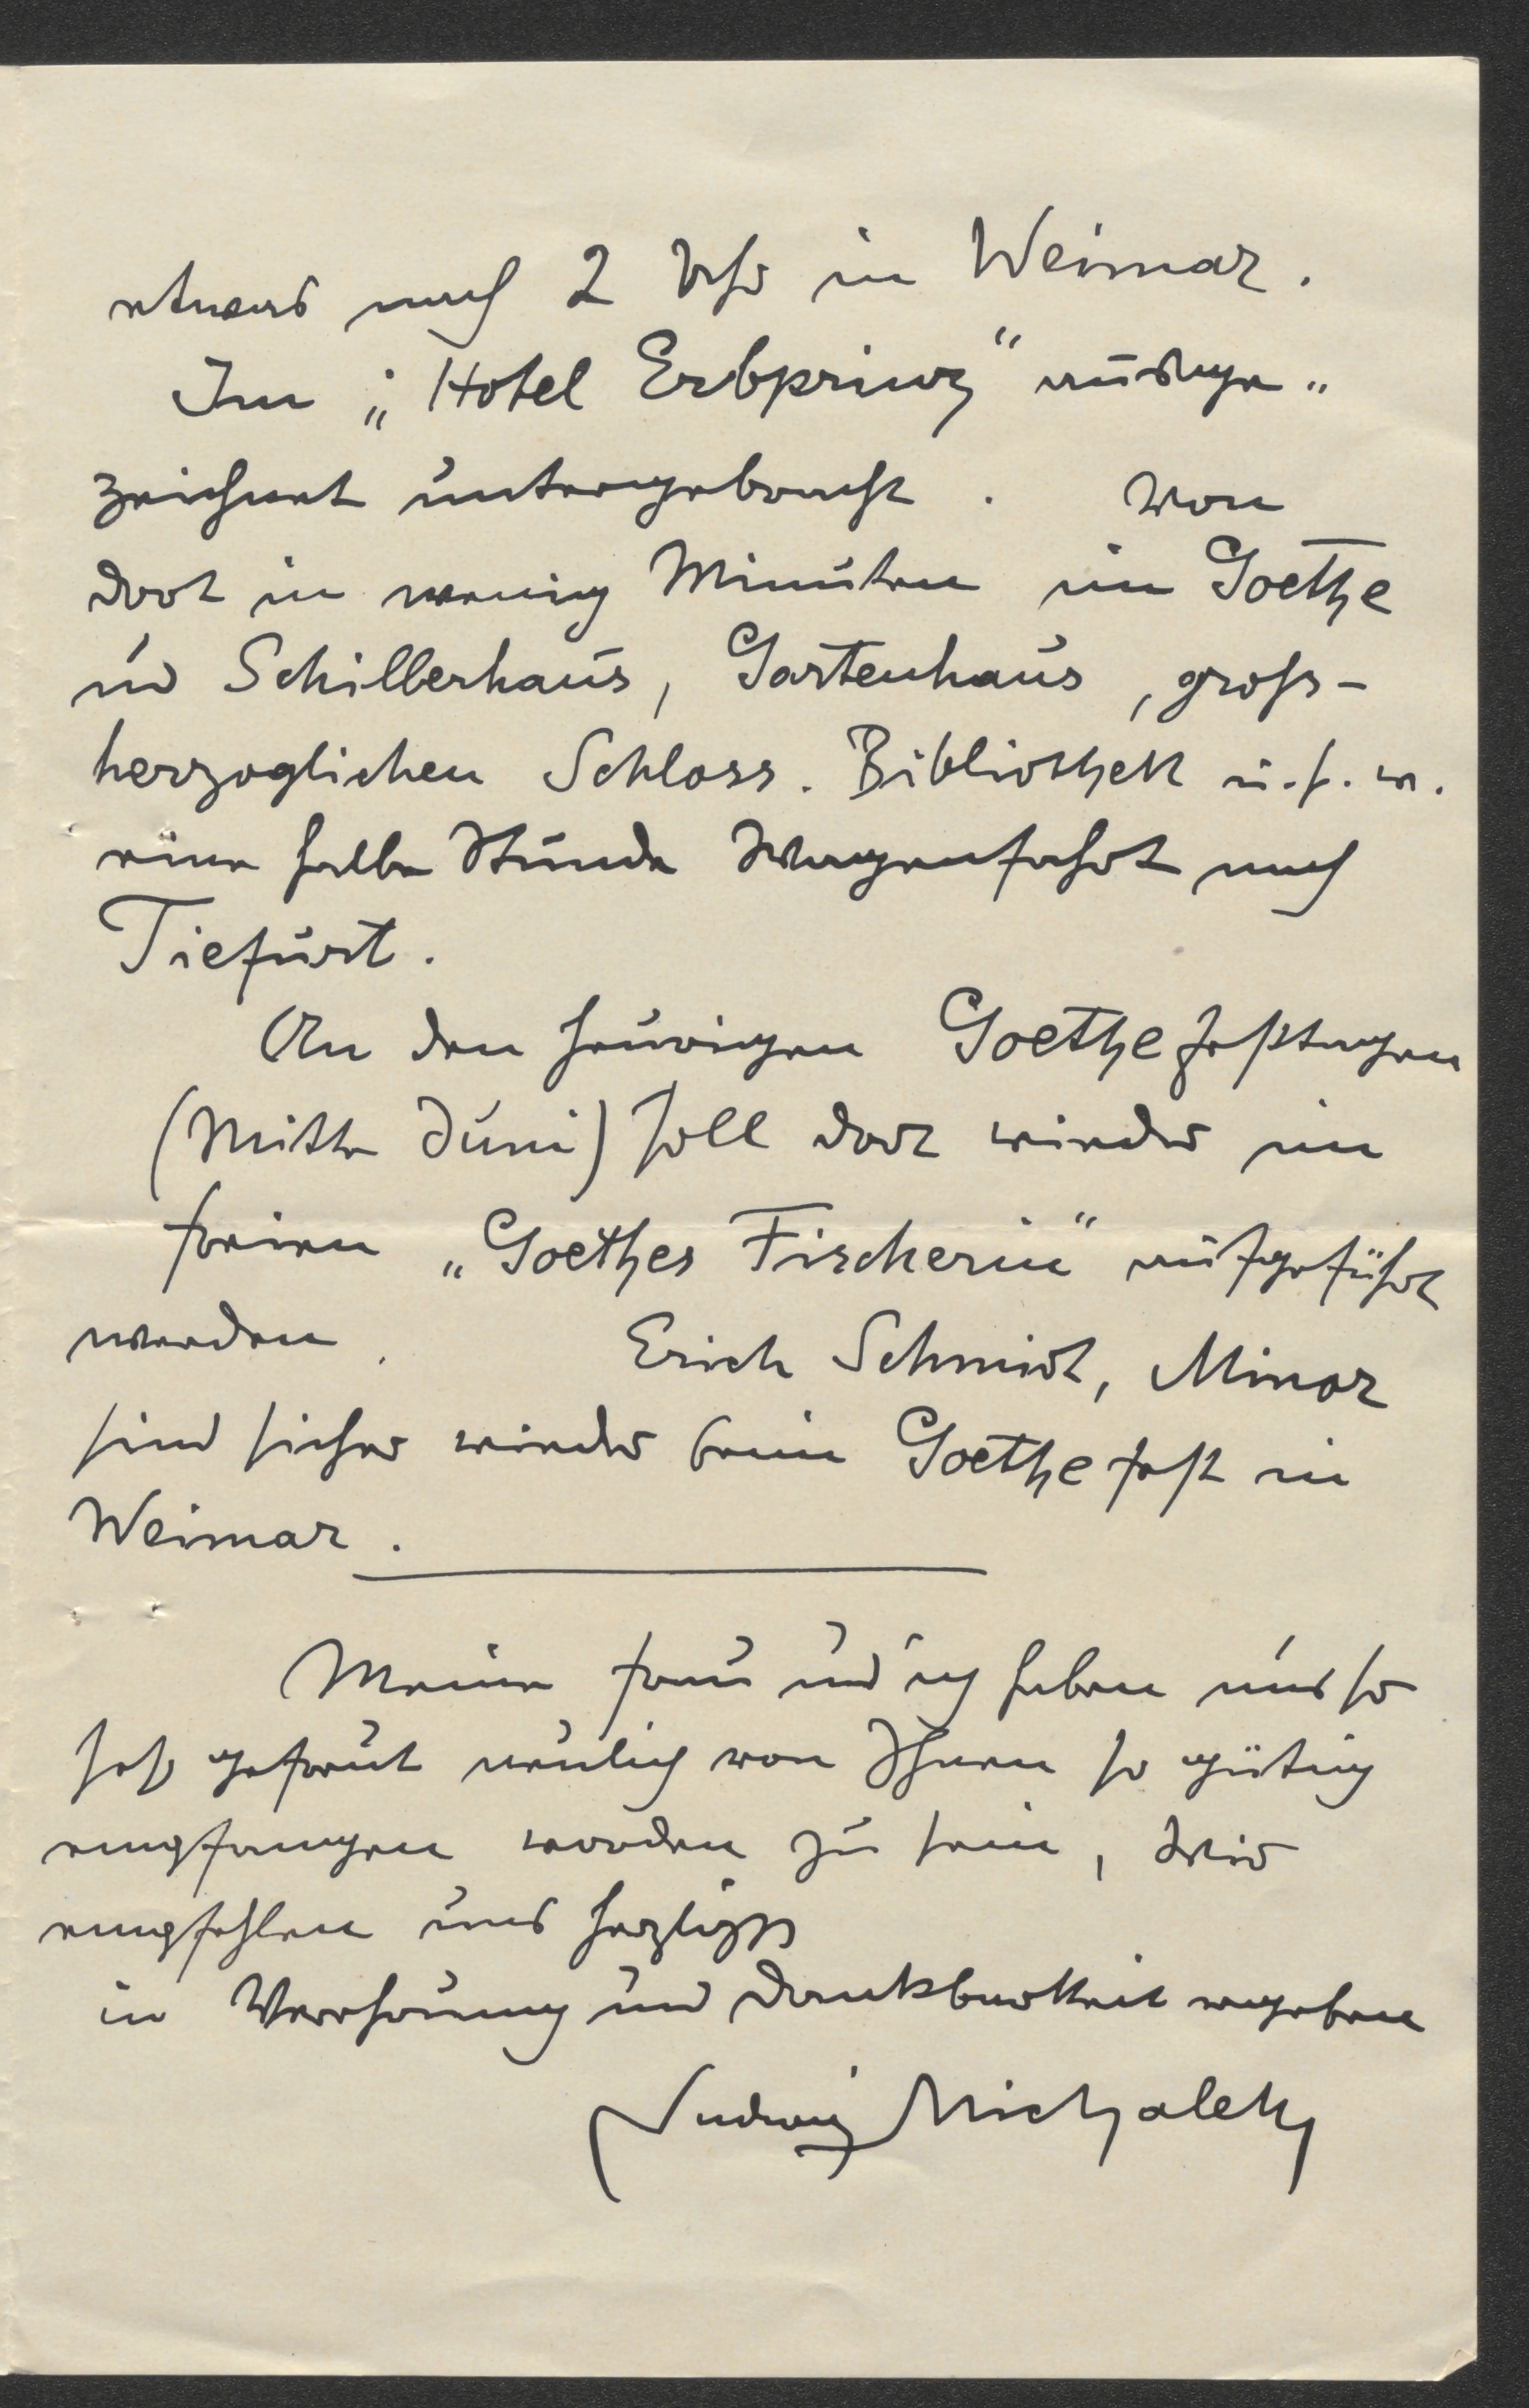 etwas nach 2 Uhr in Weimar.
Im „Hotel Erbprinz“ ausge„
zeichnet untergebracht. Von
dort in wenig Minuten im Goethe
und Schillerhaus, Gartenhaus, gross-
herzoglichen Schloss. Bibliothek u.s.w.
eine halbe Stunde Wagenfahrt nach
Tiefurt.
An den heurigen Goethefesttagen
(Mitte Juni) soll dort wieder im
freien „Goethes Fischerin“ aufgeführt
werden. Erich Schmidt, Minor
sind sicher wieder beim Goethefest in
Weimar.
Meine Frau und ich haben uns so
sehr gefreut neulich von Ihnen so gütig
empfangen worden zu sein, Wir
empfehlen uns herzlichst
in Verehrung und Dankbarkeit ergeben
Ludwig Michalek